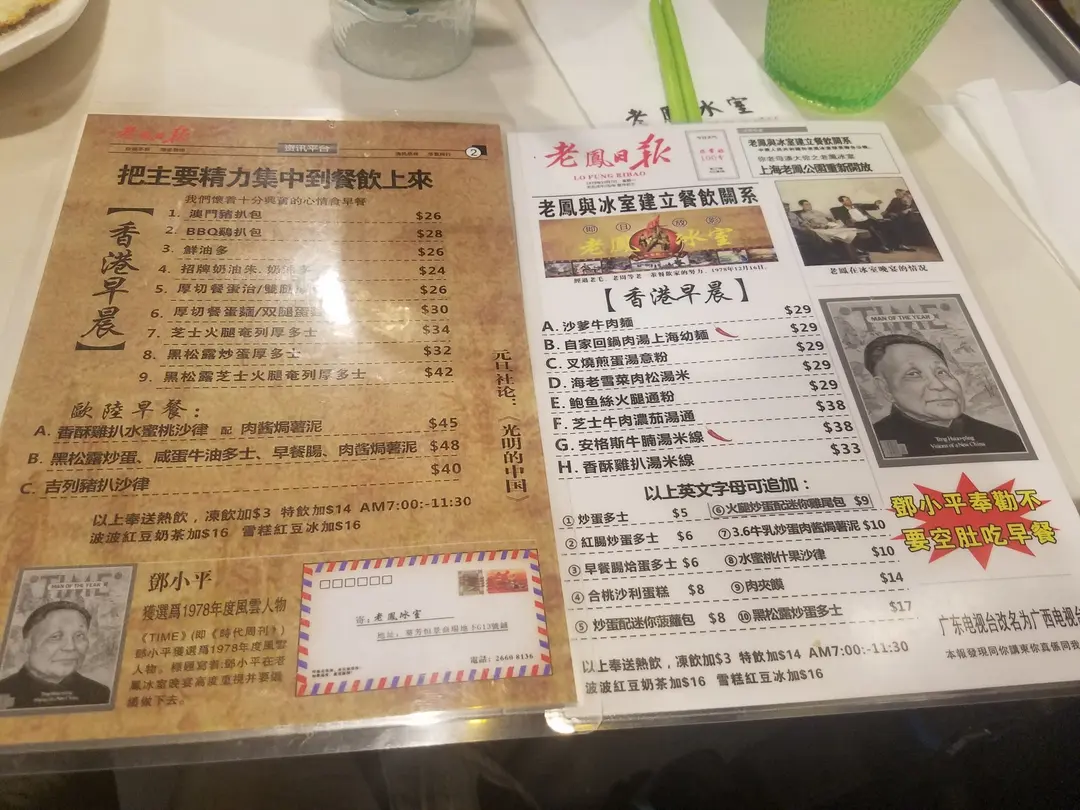 老鳳冰室
老鳳日报
资讯平台
2
把主要精力集中到餐飲上來
我們懷着十分興奮的心情食早餐
【香港早晨】
1. 澳門豬扒包 $26
2. BBQ雞扒包 $28
3. 鮮油多 $26
4. 招牌奶油朱. $24
5. 厚切餐蛋治/雙 $26
6. 厚切餐蛋麵/双腿蛋 $30
7. 芝士火腿奄列厚多士 $34
8. 黑松露炒蛋厚多士 $32
9. 黑松露芝士火腿奄列厚多士 $42
元旦社论：《光明的中国》
歐陸早餐：
A. 香酥雞扒水蜜桃沙律 配 肉酱焗薯泥 $45
B. 黑松露炒蛋、咸蛋牛油多士、早餐腸、肉酱焗薯泥 $48
C. 吉列豬扒沙律 $40
以上奉送熱飲，凍飲加$3 特飲加$14 AM7:00:-11:30
波波紅豆奶茶加$16 雪糕紅豆冰加$16
TIME
MAN OF THE YEAR
鄧小平
獲選爲1978年度風雲人物
《TIME》(即《時代周刊》)
鄧小平獲選爲1978年度風雲
人物。
鳳冰室晚宴高度重視并要繼
續做下去。
寄：老鳳冰室
地址：翠芳恒景商場地下G13號鋪
電話：2660 8136
老鳳日报
LO FUNG RIBAO
老鳳與冰室建立餐飲關系
老鳳與冰室建立餐飲關系
上海老鳳公園重新開放
節目放影
老鳳冰室
經過老毛、老周等老一輩餐飲家的努力，1978年12月16日。
老鳳在冰室晚宴的情况
【香港早晨】
A. 沙爹牛肉麵 $29
B. 自家回鍋肉湯上海幼麵 $29
C. 叉燒煎蛋湯意粉 $29
D. 海老雪菜肉松湯米 $29
E. 鮑魚絲火腿通粉 $29
F. 芝士牛肉濃茄湯通 $38
G. 安格斯牛腩湯米線 $38
H. 香酥雞扒湯米線 $33
TIME
MAN OF THE YEAR
Teng Hsiao-p'ing
Visions of a New China
以上英文字母可追加：
① 炒蛋多士 $5
② 紅腸炒蛋多士 $6
③ 早餐腸炒蛋多士 $6
④ 合桃沙利蛋糕 $8
⑤ 炒蛋配迷你菠蘿包 $8
⑥ 火腿炒蛋配迷你雞尾包 $9
⑦ 3.6牛乳炒蛋肉酱焗薯泥 $10
⑧ 水蜜桃什果沙律 $10
⑨ 肉夾饃 $14
⑩ 黑松露炒蛋多士 $17
鄧小平奉勸不
要空肚吃早餐
以上奉送熱飲，凍飲加$3 特飲加$14 AM7:00:-11:30
波波紅豆奶茶加$16 雪糕紅豆冰加$16
广东电视台改名为广西电视台
本報發現同你講東你直係同我